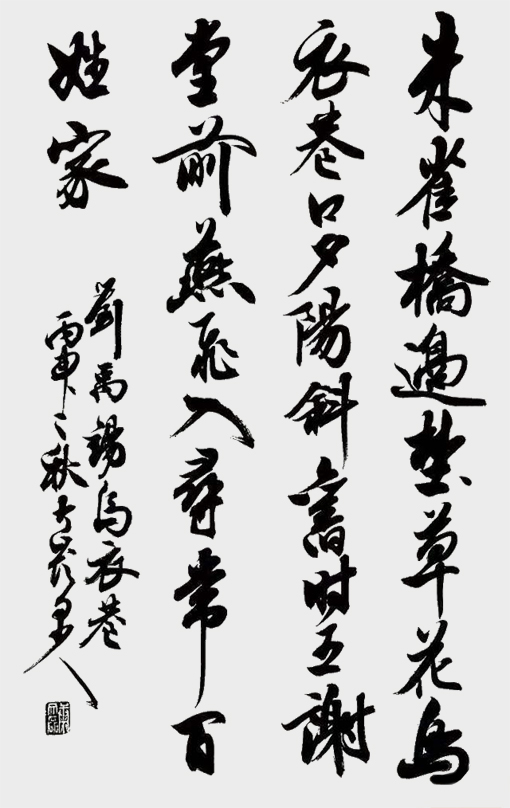 朱雀橋邊埜草花烏
衣巷口夕陽斜舊时王謝
堂前燕飛入尋常百
姓家
劉禹錫烏衣巷
丙申之秋人